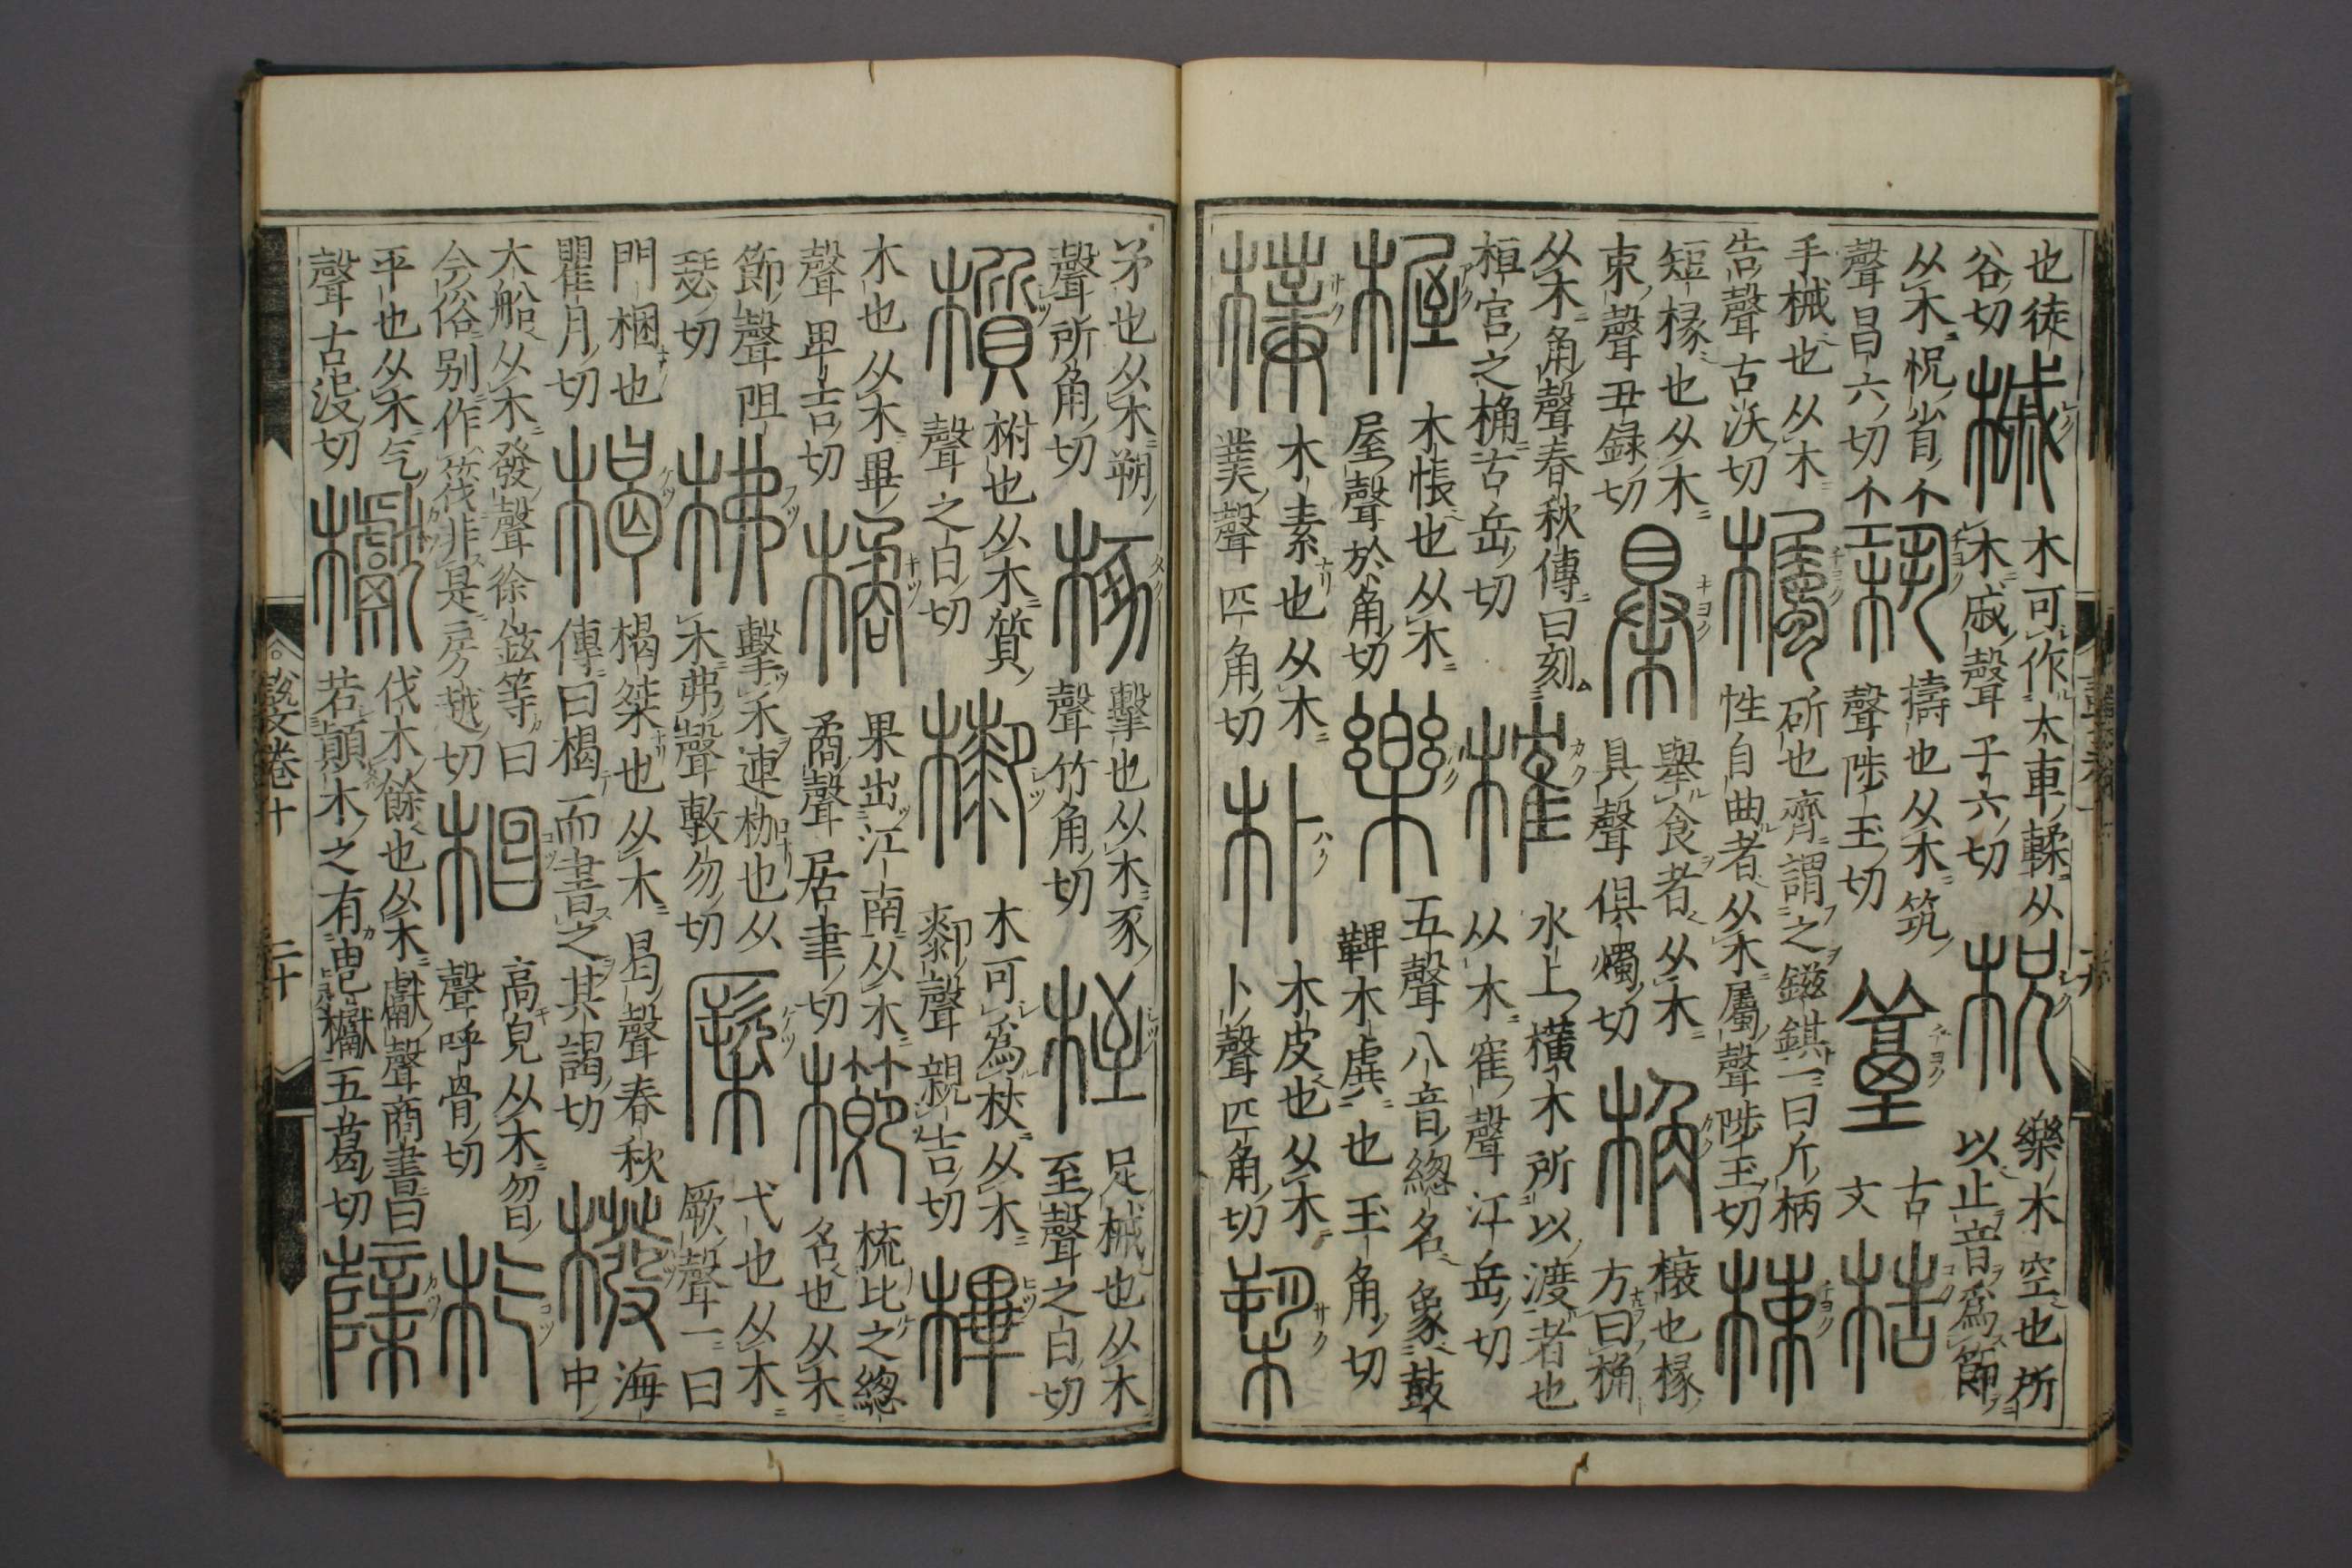 也徒
谷切
槭
木可作大車輮从
木戚聲子六切
柷
樂木空也所
以止音爲節
从木柷省
聲昌六切
築
擣也从木筑
聲陟玉切
古
文
梏
手械也从木
告聲古沃切
欘
斫也齊謂之鎡錤一曰斤柄
性自曲者从木屬聲陟玉切
梀
短椽也从木
束聲丑録切
暴
舉食者从木
具聲俱燭切
桷
榱也椽
方曰桷
从木角聲春秋傳曰刻
桓宫之桷古岳切
榷
水上橫木所以渡者也
从木隺聲江岳切
楃
木帳也从木
屋聲於角切
樂
五聲八音緫名象鼓
鞞木虡也玉角切
樸
木素也从木
菐聲匹角切
朴
木皮也从木
卜聲匹角切
槊
矛也从木朔
聲所角切
椓
擊也从木豖
聲竹角切
桎
足械也从木
至聲之日切
櫍
柎也从木質
聲之日切
木可爲杖从木
厀聲親吉切
㮿
木也从木畢
聲卑吉切
橘
果出江南从木
矞聲居聿切
櫛
梳比之緫
名也从木
節聲阻
瑟切
柫
擊禾連枷也从
木弗聲敷勿切
橜
弋也从木
厥聲一曰
門梱也
瞿月切
楬
楬桀也从木曷聲春秋
傳曰楬而書之其謁切
橃
海
中
大船从木發聲徐鉉等曰
今俗别作筏非是房越切
㮯
高皃从木曶
聲呼骨切
杚
平也从木气
聲古没切
伐木餘也从木獻聲商書曰
若顚木之有㽕五葛切
說文卷十
二十